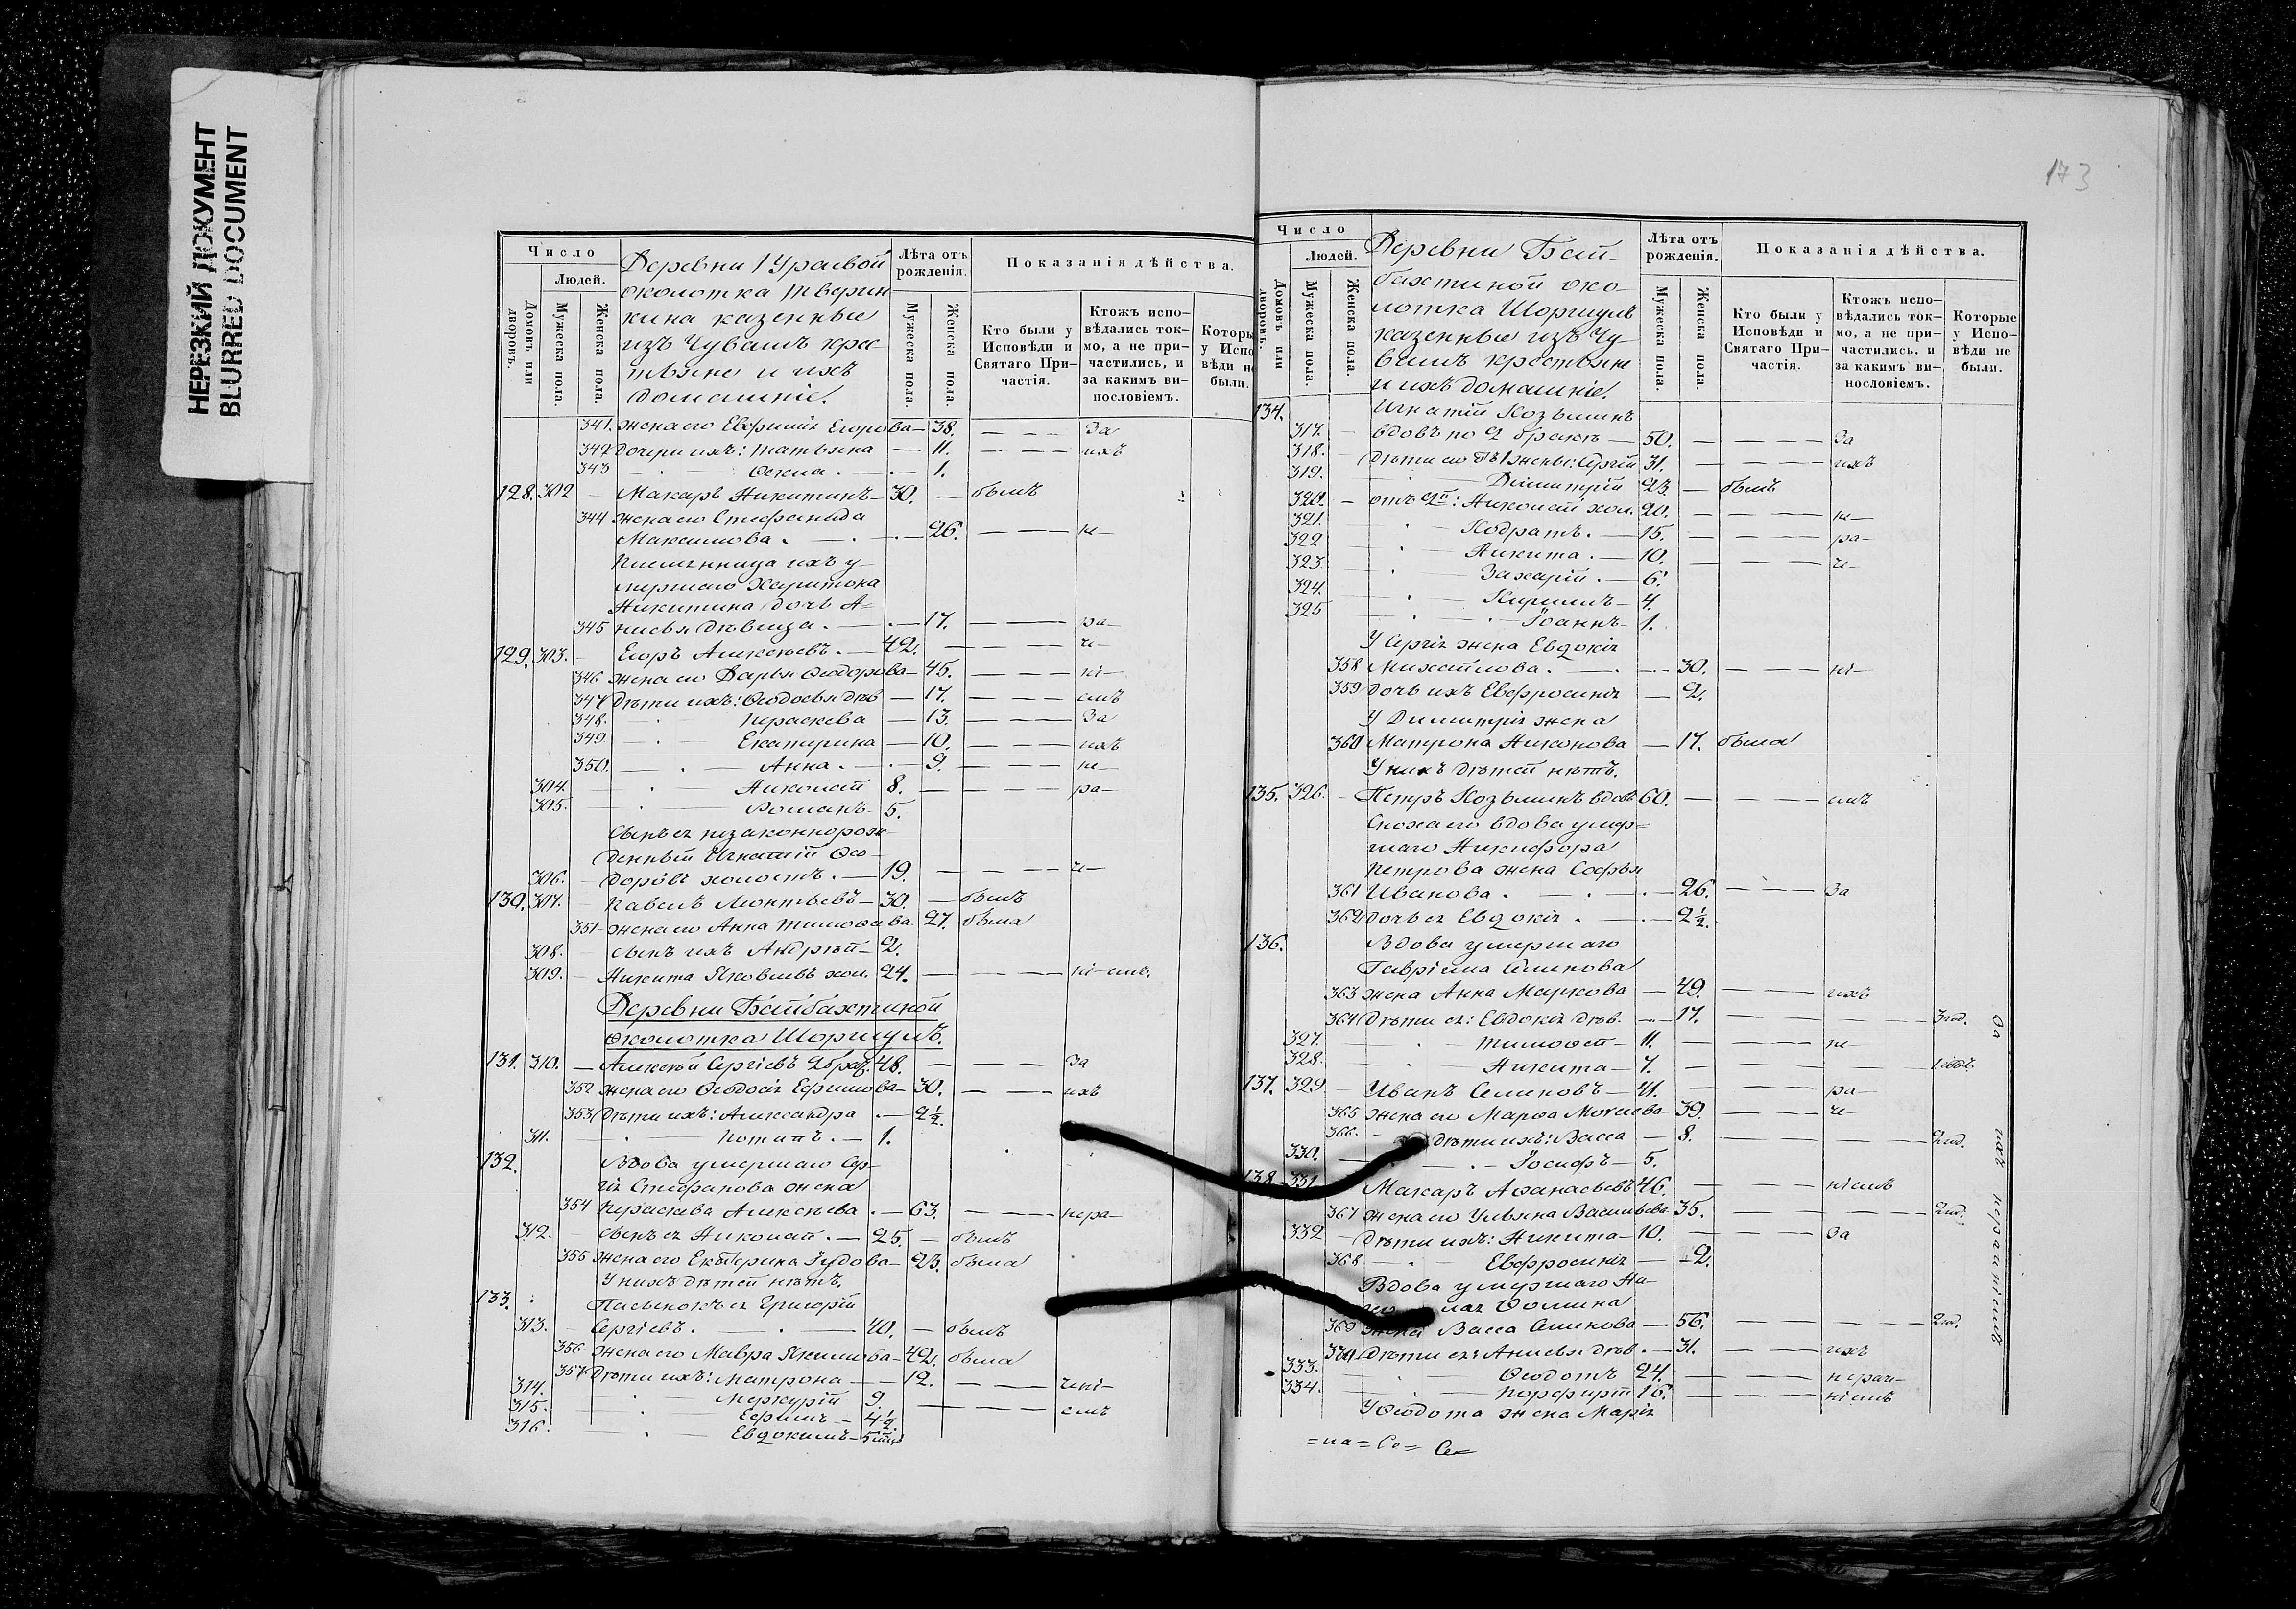 НЕРЕЗКИЙ ДОКУМЕНТ
BLURRED DOCUMENT
Число
Людей.
Домовъ или дворовъ.
Мужеска пола.
Женска пола.
Деревни 1 Ураевой
околотка
кина казенные
изъ Чувашъ кре-
стьяне и ихъ
домашніе.
Лѣта отъ рожденія.
Мужеска пола.
Женска пола.
Показанія дѣйства.
Кто были у Исповѣди и Святаго Причастія.
Ктожъ исповѣдались токмо, а не причастились, и за какимъ винословіемъ.
Которы у Испо вѣди не были.
341. жена его Евфимія Егорова — 38. — — — За
342 дочери ихъ: Татьяна — 11. — — — ихъ
343 — 1.
128. 302 — Макаръ Никитинъ — 30. — былъ
344 жена его Стефанида
Максимова . — . — 26. — — — не—
ихъ у
мершаго Харитона
Никитина дочь А=
345 нисья дѣвица . — . — 17. — — — ра—
129. 303. — Егоръ Алексѣевъ . — 42. — — — че—
346 жена его Дарья Ѳеодорова — 45. — — — ні—
347 Дѣти ихъ: Ѳеодосья дѣв — 17. — — — емъ
348. — Параскева — 13. — — — За
349 — Екатерина — 10. — — — ихъ
350. — . — Анна . — . — 9. — — — не—
304. — . — Николай 8. — — — ра—
305. — . — Романъ 5.
Сынъ ея незаконнорож
денный Игнатій Ѳео—
306. — доровъ холостъ . — 19. — — — че—
130. 307. — Павелъ Леонтьевъ — 30. — былъ
351 — жена его Анна Тимоѳеева — 27. была
308. — сынъ ихъ Андрей — 2.
309. — Никита Яковлевъ хол. 24. — — —
Деревни Байбахтиной
околотка Шоргилъ.
131. 310. — Алексѣй Сергіевъ 2 брак. 48. — — — За
352 жена его Ѳеодосія Ефимова — 30. — — ихъ
353 Дѣти ихъ: Александра . — 2½.
311. — . — . — 1.
132. Вдова умершаго Сер—
гія Стефанова жена
354 Параскева Алексѣева . — 63. — — — нера—
312. — Сынъ ея Николай . — 25. — былъ
355 жена его Екатерина — 23. была
У нихъ дѣтей нѣтъ.
133. Пасынокъ ея Григорій
313. — Сергіевъ . — . — 40. — былъ
356 жена его Мавра Якимова — 42. была
357 Дѣти ихъ: Матрона — — 12. — — — чені—
314. — . — Меркурій 9. — — — емъ
315. — . — Ефимъ — 4½.
316. — . — Евдокимъ — 5 мѣс
173
Число
Людей.
Домовъ или дворовъ.
Мужеска пола.
Женска пола.
Деревни Бай-
бахтиной око-
лотка Шоргилъ
казенные изъ Чу-
вашъ крестьяне
и ихъ домашніе.
Лѣта отъ рожденія.
Мужеска пола.
Женска пола.
Показанія дѣйства.
Кто были у Исповѣди и Святаго Причастія.
Ктожъ исповѣдались токмо, а не причастились, и за какимъ винословіемъ.
Которые у Исповѣди не были.
134. Игнатій Козьминъ
317. — вдовъ по 2 бракѣ — 50. — — — — За
318. — Дѣти его отъ 1 жены: Сергій 31. — — — — ихъ
319. — Димитрій 23. — былъ
320. — отъ 2й: Николай хол. 20. — — — — не—
321. — . — Кодратъ . — 15. — — — — ра—
322 — . — Никита . — 10. — — — — че—
323. — . — Захарій . — 6.
324. — . — Кириллъ — 4.
325 — . — Іоаннъ — 1.
У Сергія жена Евдокія
358 Михайлова . — . — 30. — — — ні—
359 дочь ихъ Евфросинія — 2.
У Димитрія жена
360 Матрона Никонова — 17. была
У нихъ дѣтей нѣтъ.
135. 326. — Петръ Козьминъ вдовъ 60. — — — — емъ
Сноха его вдова умер=
шаго Никифора
Петрова жена Софья
361 Иванова . — . — 26. — — — За
362 дочь ея Евдокія . — . — 2½.
136. Вдова умершаго
Гавріила Семенова
363 жена Анна Маркова — 49. — — — ихъ
364 Дѣти ея: Евдокія дѣв. — — 17. — — — — 3 год.
327. — . — Тимоѳей — 11. — — — не—
328. — . — Никита — 7. — — — —
137. 329 — Иванъ Семеновъ — 41. — — — ра—
365 жена его Марѳа — 39. — — — че—
366. — Дѣти ихъ: Васса — 8. — — — — 2 год.
330. — . — Іосифъ — 5.
138. 331 Макаръ Аѳанасьевъ 46. — — — ніемъ
367 жена его Ульяна Васильева 35. — — — — 2 год.
332 — Дѣти ихъ: Никита — 10. — — — За
368 — . — Евфросинія — 2.
Вдова умершаго На—
Ѳомина
369 жена Васса Семенова — 56. — — — — 2 год.
370 Дѣти ея: Анисья дѣв . — 31. — — — ихъ
333. — . — Ѳеодотъ 24. — — — нераче—
334. — . — Порфирій 16. — — — ніемъ
У Ѳеодота жена Марія
За ихъ нераченіемъ